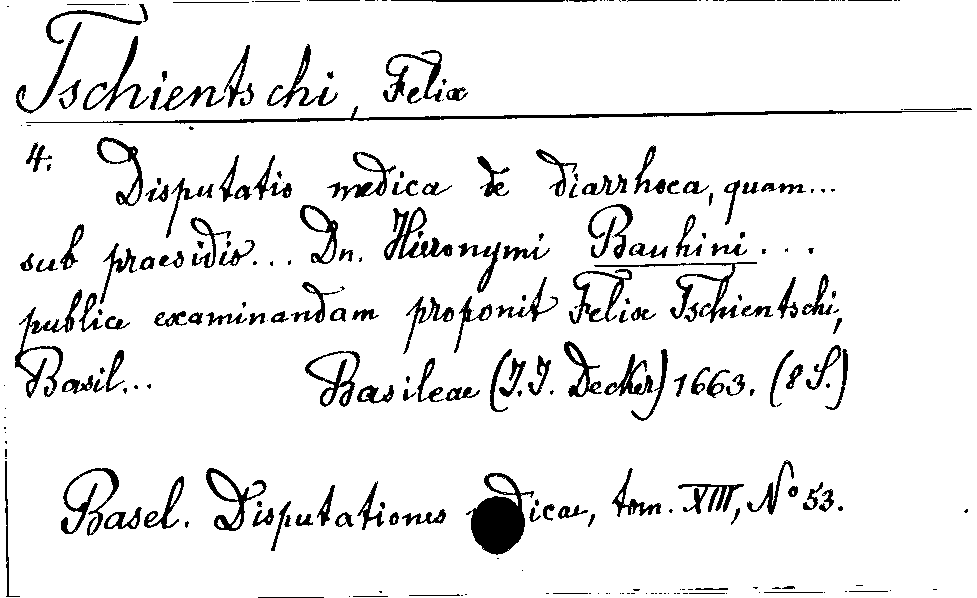 Tschientschi, Felix
4. Disputatio medica de diarrhoea, quam...
sub praesidio... Dn. Hieronymi Bauhini ...
publice examinandam proponit Felix Tschientschi,
Basil... Basileae (J. J. Decker) 1663. (8 S.)
Basel. Disputationes dicae, tom. XIII, No 53.